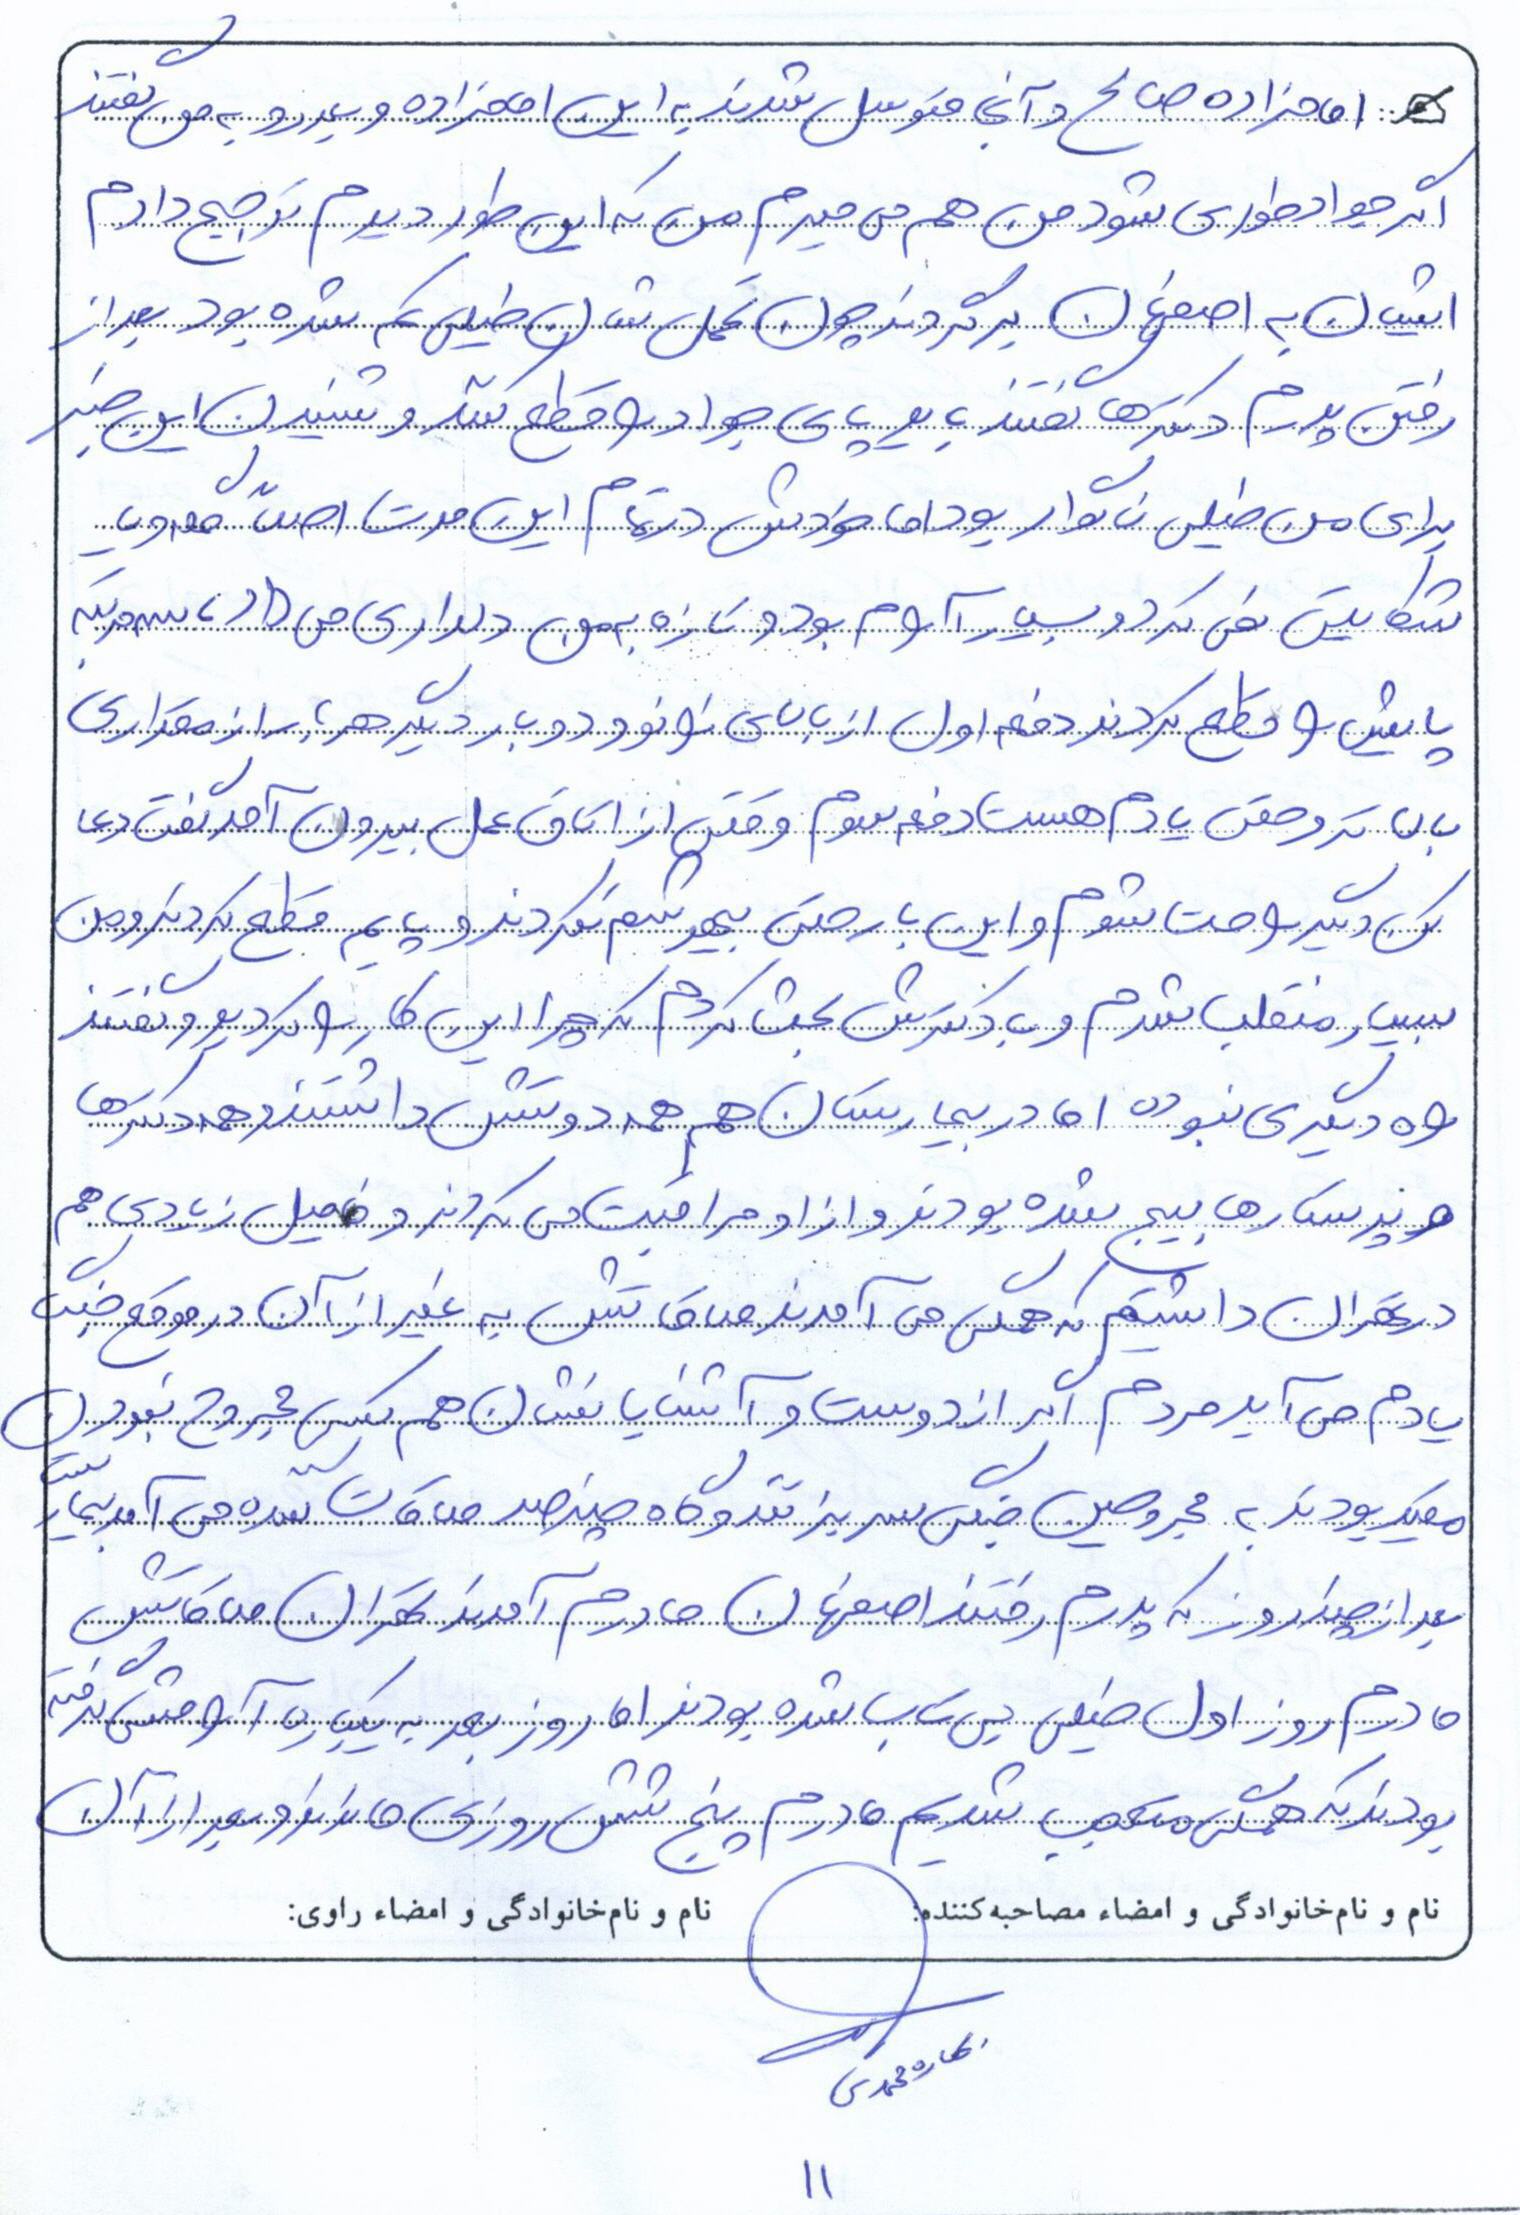 امامزاده صالح و آنجا متوسل شدند به این امامزاده و بعد رو به من گفتند
اگر جواد طوری بشود من هم می میرم من که این طور دیدم ترجیح دادم
ایشان به اصفهان برگردند چون تحمل شان خیلی کم شده بود بعد از
رفتن پدرم دکترها گفتند باید پای جواد را قطع کنند و شنیدن این خبر
برای من خیلی ناگوار بود اما خودش در تمام این مدت اصلاً گله و یا
شکایتی نمی کرد و بسیار آرام بود و تازه به من دلداری می داد تا سه مرتبه
پایش را قطع کردند دفعه اول از بالای زانو و دو بار دیگر هر بار از مقداری
بالا تر و حتی یادم هست دفعه سوم وقتی از اتاق عمل بیرون آمد گفت دعا
کن دیگر راحت شوم و این بار حتی بیهوشم نکردند و پایم قطع کردند و من
بسیار منقلب شدم و با دکترش بحث کردم که چرا این کار را کردید و گفتند
راه دیگری نبوده اما در بیمارستان هم همه دوستش داشتند و همه دکترها
و پرستارها بسیج شده بودند و از او مراقبت می کردند و فامیل زیادی هم
در تهران داشتیم که همگی می آمدند ملاقاتش به غیر از آن در موقع جنگ
یادم می آید مردم اگر از دوست و آشنایانشان هم کسی مجروح نبود ن
مقید بودند به مجروحین جنگی سر بزنند و گاه چند صد ملاقات کننده می آمد بیمارستان
بعد از چند روز که پدرم رفتند اصفهان مادرم آمدند تهران ملاقاتش
مادرم روز اول خیلی بی تاب شده بودند اما روز بعد به یکباره آرامش گرفته
بودند که همگی متعجب شدیم مادرم پنج شش روزی ماندند و بعد از آن
نام و نام‌خانوادگی و امضاء مصاحبه‌کننده:
نام و نام‌خانوادگی و امضاء راوی:
محمدی
۱۱